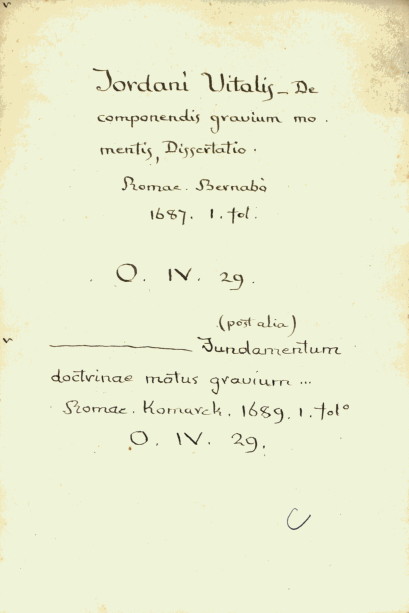 Jordani Vitalis - De
componendis gravium mo.
mentis, Dissertatio.
Romae. Bernabò
1687. 1. fol.
O. IV. 29.
(post alia)
Fundamentum
doctrinae motus gravium ...
Romae. Komarek. 1689. 1. folº
O. IV. 29.
C